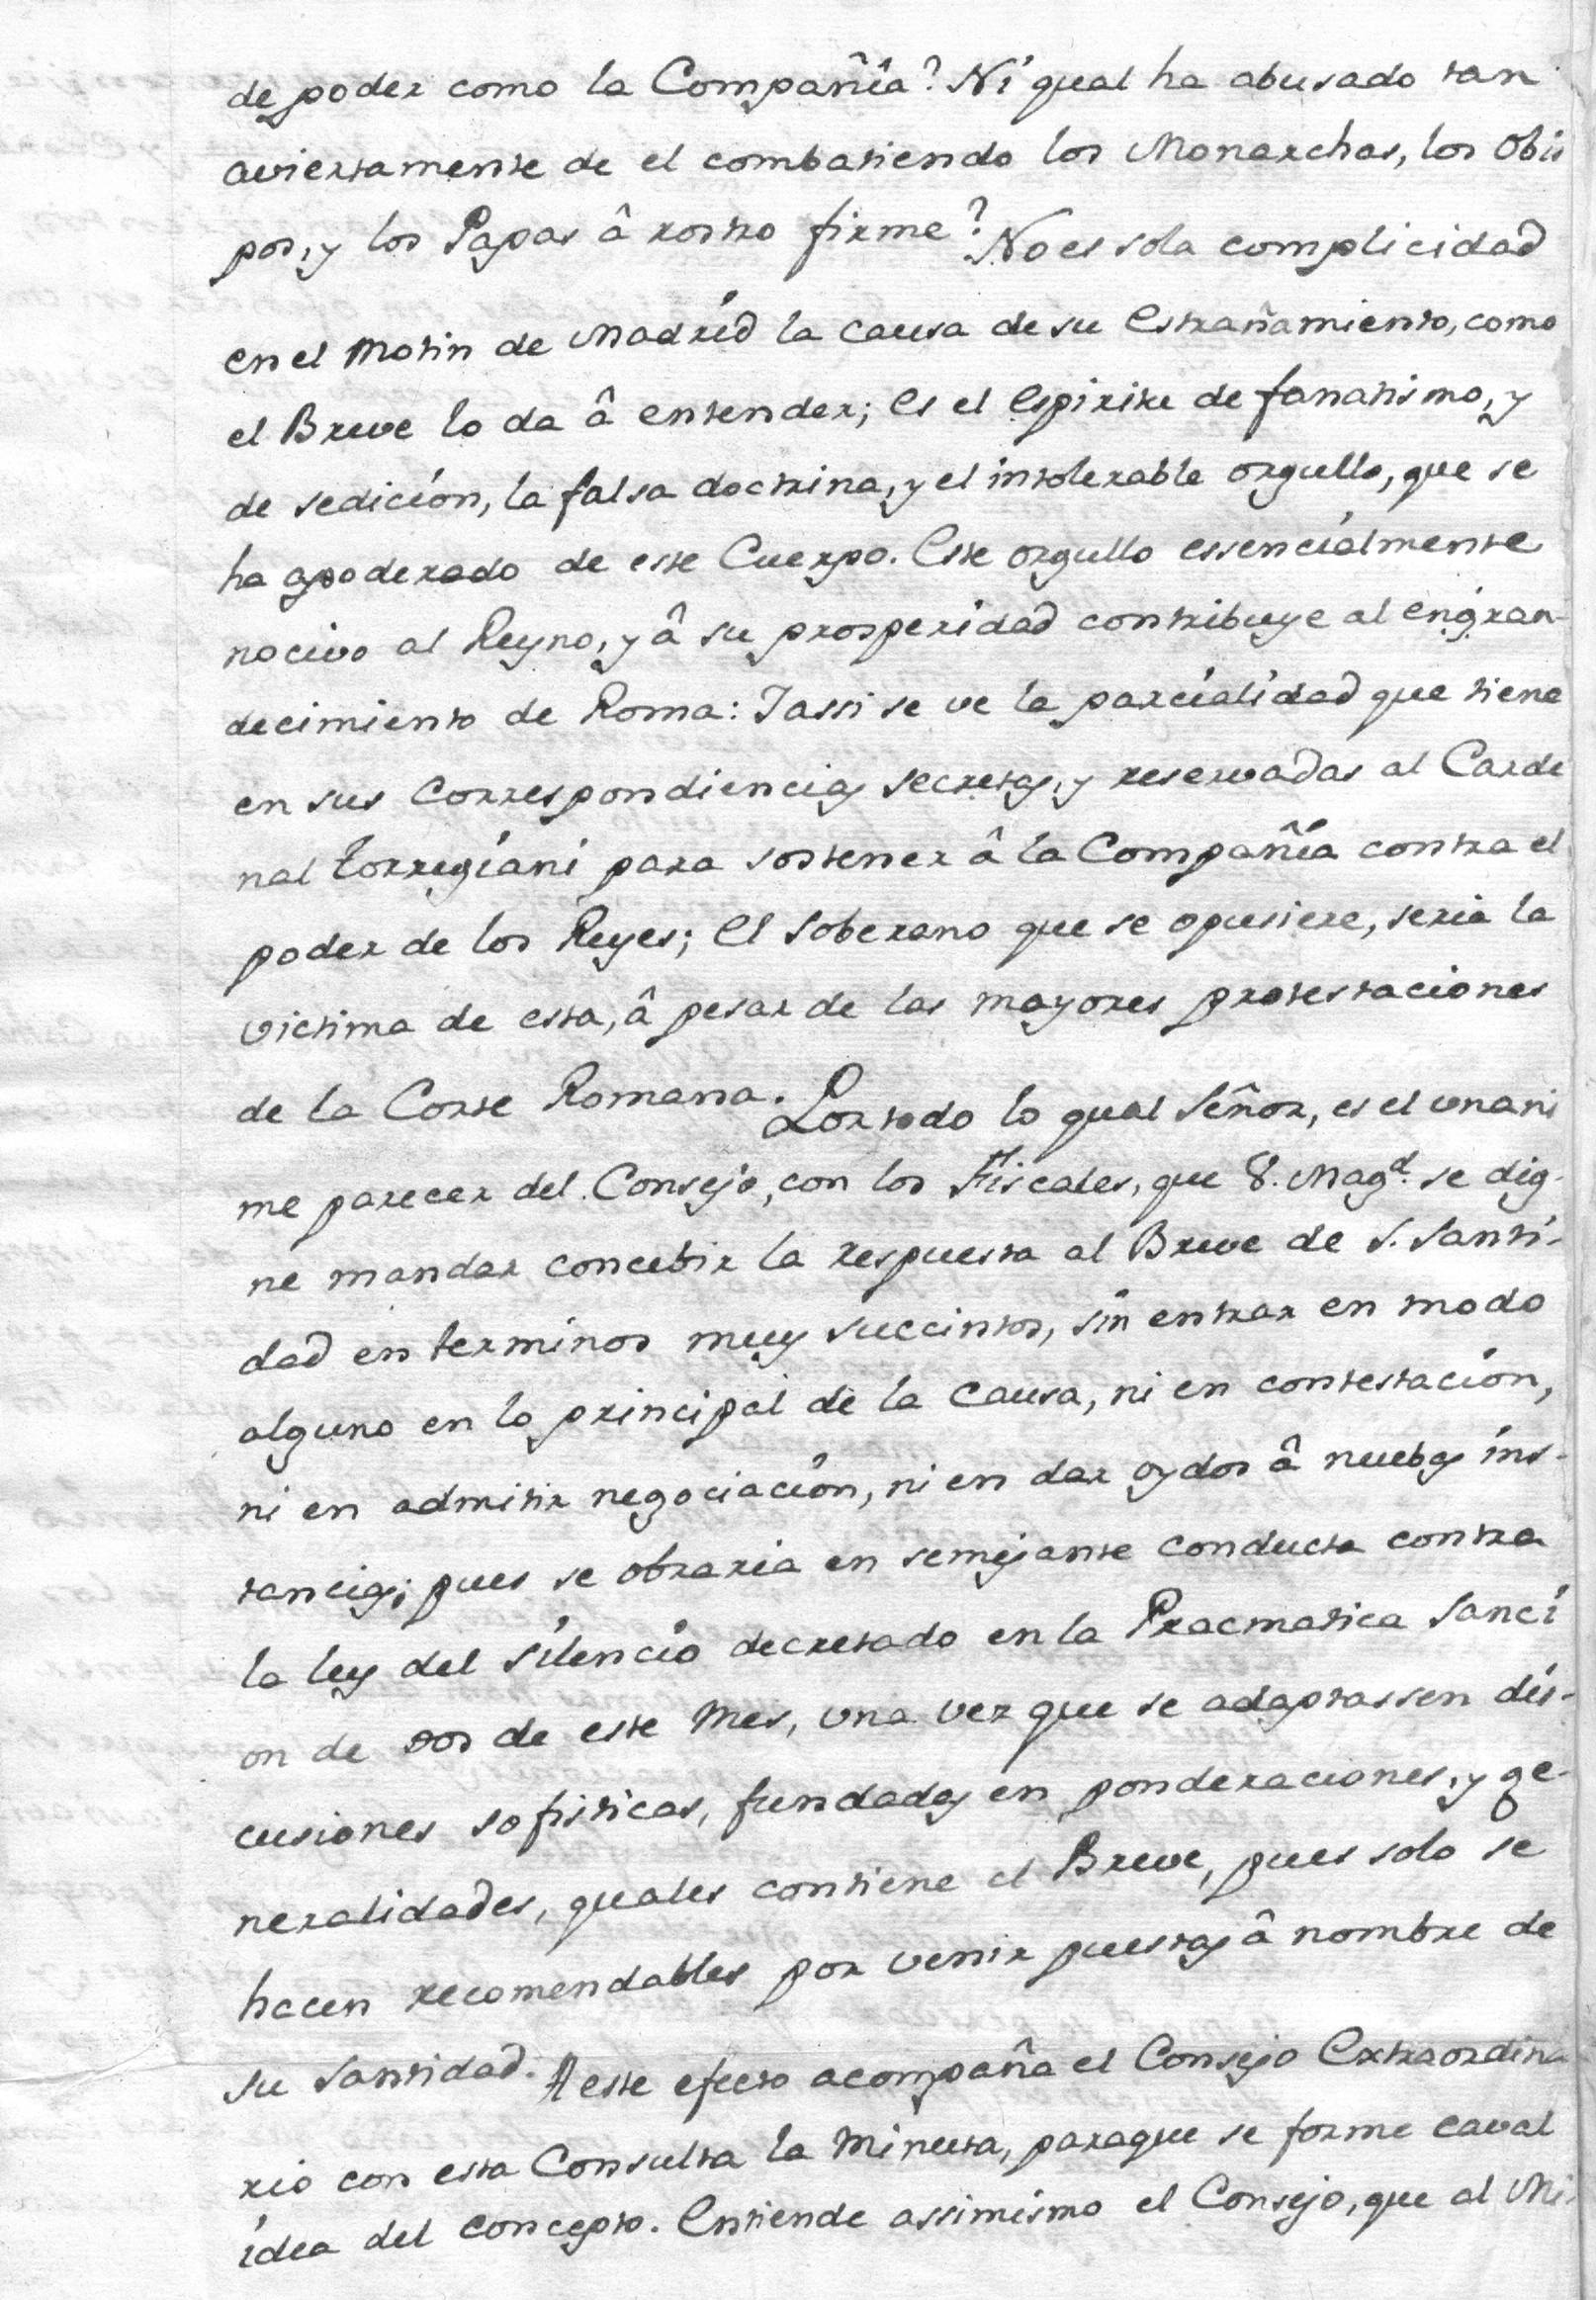 de poder como la Compañîa? Ni qual ha abusado tan
aviertamente de el combatiendo los Monarchas, los Obis
pos, y los Papas â rostro firme? No es sola complicidad
en el Motin de Madrid la causa de su Estrañamiento, como
el Breve lo da â entender; es el espiritu de fanatismo, y
de sedición, la falsa doctrina, y el intolerable orgullo, que se
ha apoderado de este Cuerpo. Este orgullo essencialmente
nocivo al Reyno, y â su prosperidad contribuye al engran-
decimiento de Roma: Iassi se ve la parcialidad que tiene
en sus correspondiencias secretas, y reservadas al Carde
nal Torregiani para sostener â la Compañia contra el
poder de los Reyes; el Soberano que se opusiere, seria la
victima de esta, â pesar de las mayores protestaciones
de la Corte Romana. Por todo lo qual Señor, es el unani
me parecer del Consejo, con los Fiscales, que V. Magd. se dig-
ne mandar concebir la respuesta al Breve de S. Santi-
dad en terminos muy succintos, sin entrar en modo
alguno en lo principal de la causa, ni en contestación,
ni en admitir negociación, ni en dar oydos â nuebas ins-
tancias; pues se obraria en semejante conducta contra
la ley del silencio decretado en la Pracmatica Sanci
on de dos de este Mes, una vez que se adaptassen dis-
cusiones sofisticas, fundadas en ponderaciones, y ge-
neralidades, quales contiene el Breve, pues solo se
hacen recomendables por venir puestas â nombre de
su Santidad. A este efecto acompaña el Consejo Extraordina
rio con esta Consulta la Minuta, paraque se forme caval
idea del concepto. Entiende assimismo el Consejo, que al Mi-